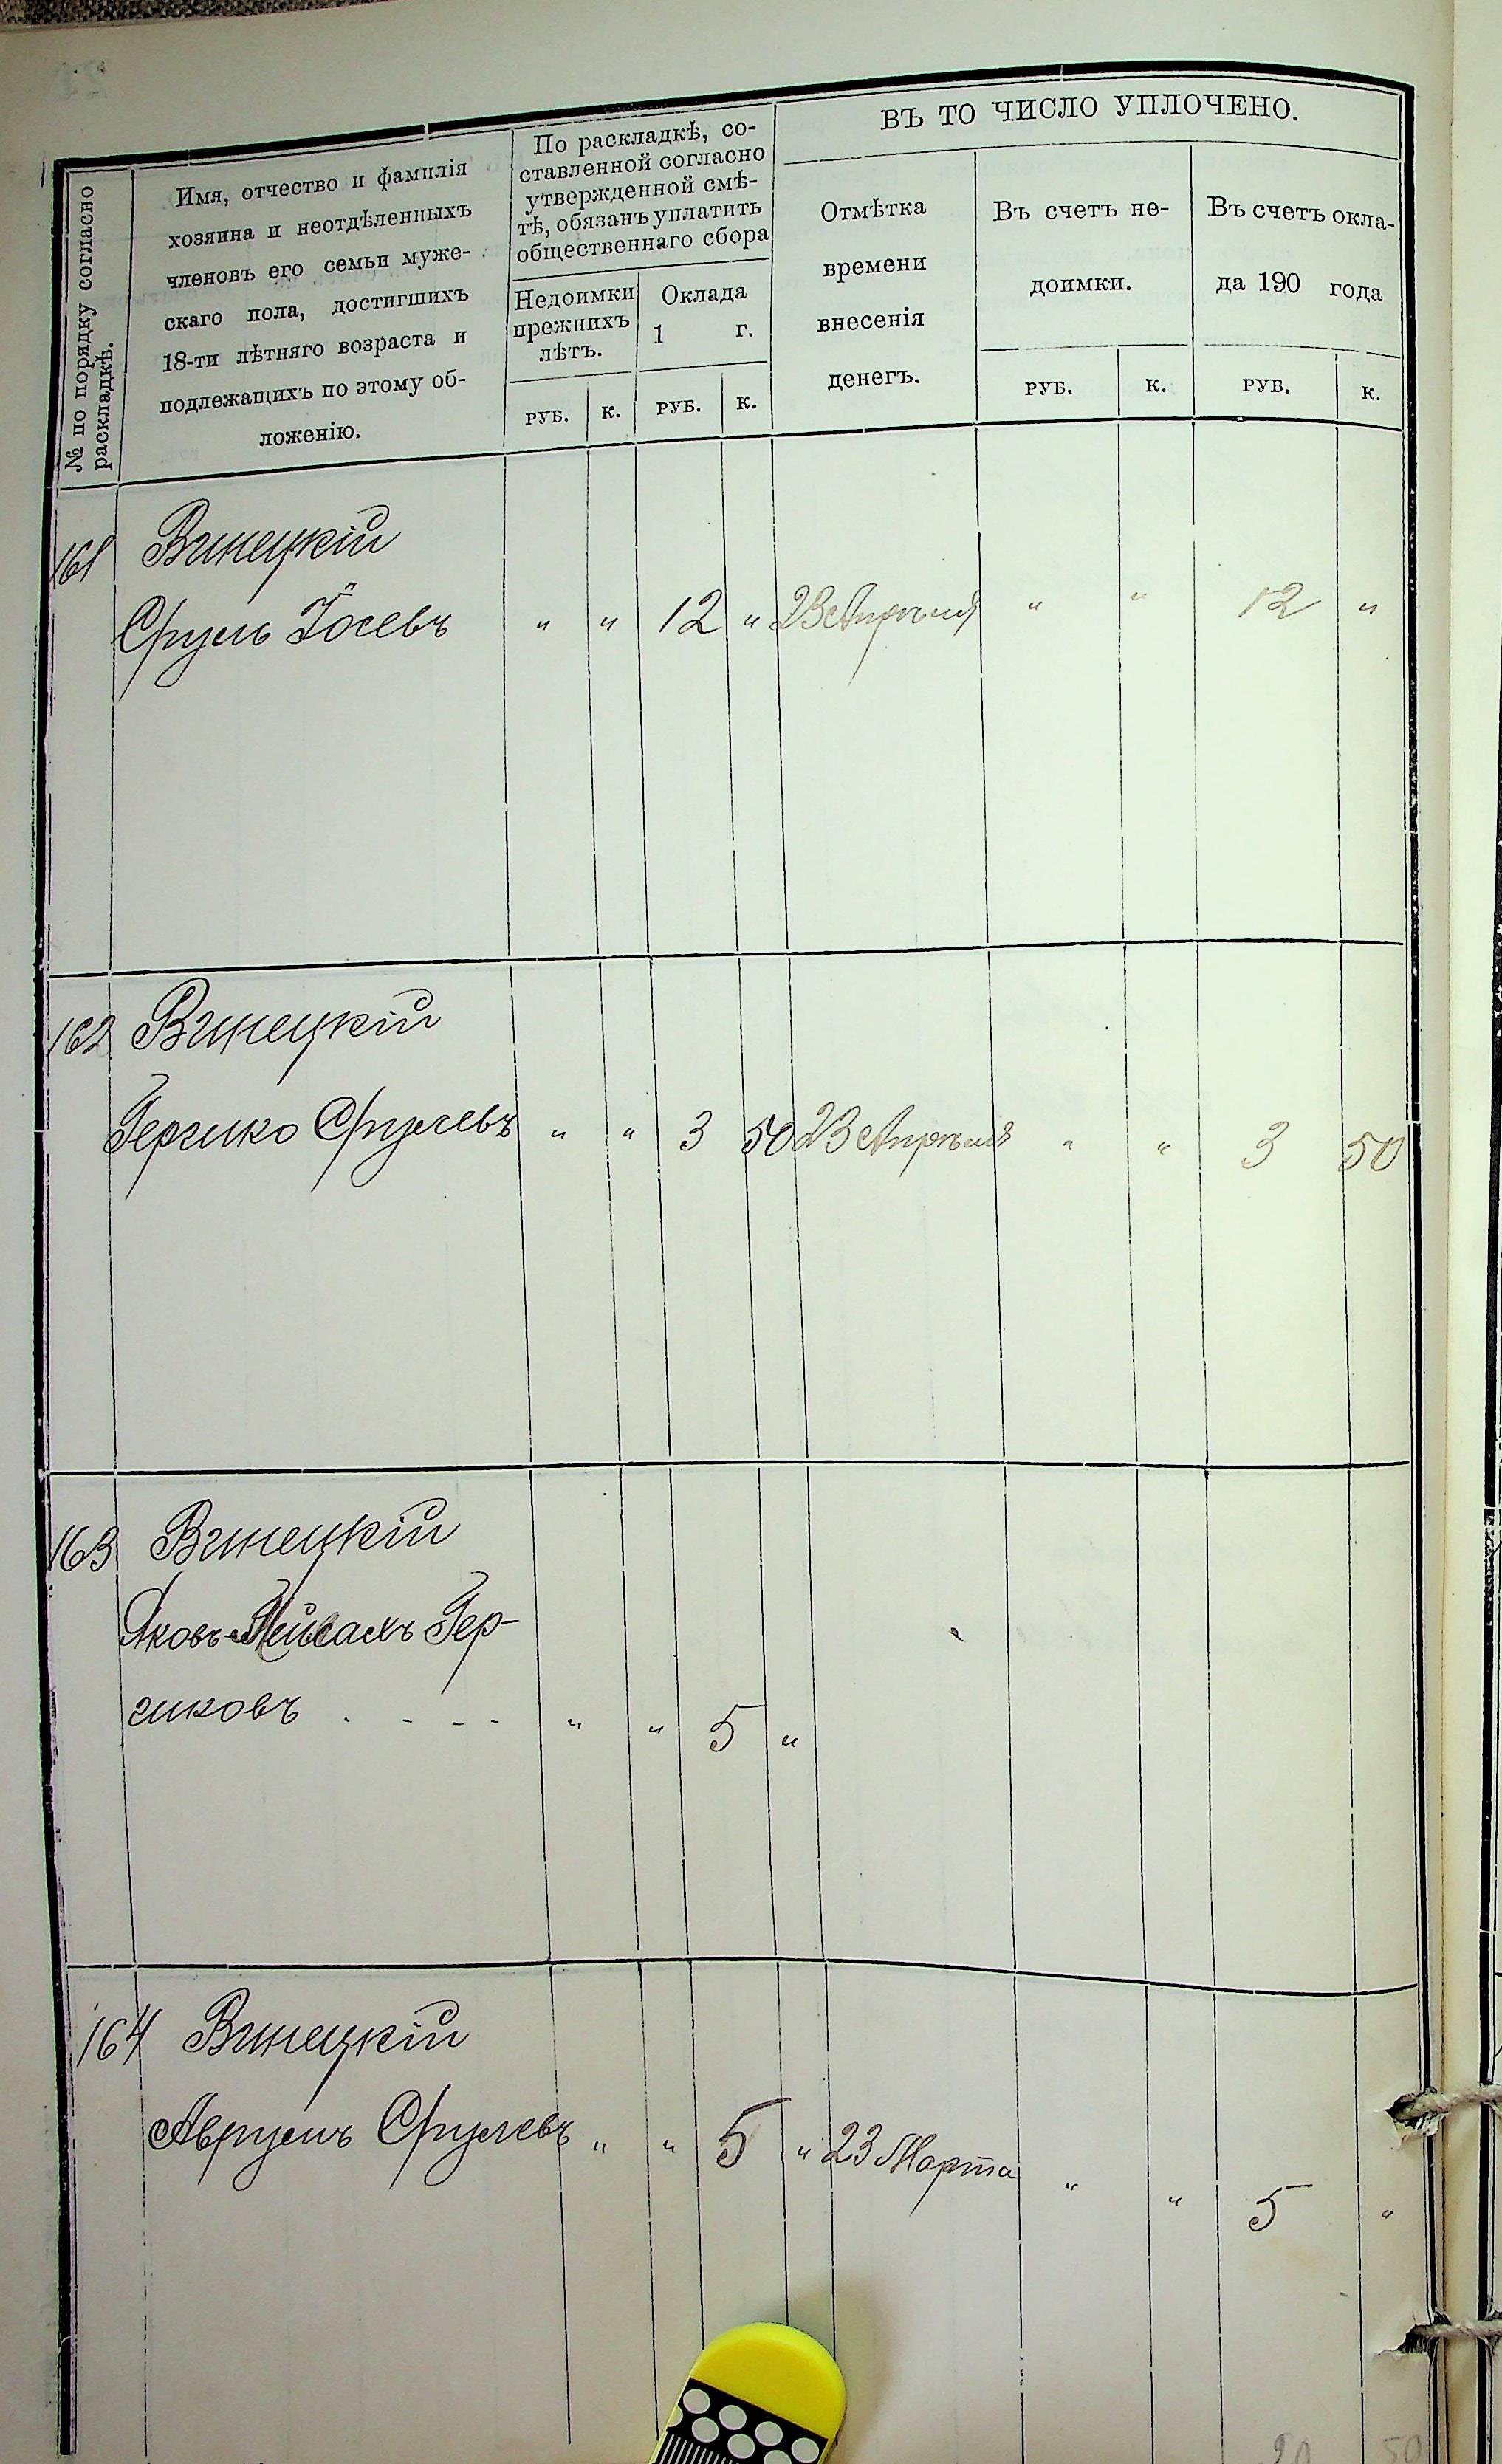 ВЪ ТО ЧИСЛО УПЛОЧЕНО.
№ по порядку согласно
раскладкѣ.
Имя, отчество и фамилія
хозяина и неотдѣленныхъ
членовъ его семьи муже-
скаго пола, достигшихъ
18-ти лѣтняго возраста и
подлежащихъ по этому об-
ложенію.
По раскладкѣ, со-
ставленной согласно
утвержденной смѣ-
тѣ, обязанъ уплатить
общественнаго сбора
Недоимки
прежнихъ
лѣтъ.
Оклада
1 г.
Отмѣтка
времени
внесенія
денегъ.
Въ счетъ не-
доимки.
Въ счетъ окла-
да 190 года
РУБ. К. РУБ. К. РУБ. К. РУБ. К.
161 Винецкій
Сруль Іосевъ " " 12 " 23 Апрѣля " " 12 "
162 Винецкій
Гершко Срулевъ " " 3 50 23 Апрѣля " " 3 50
163 Винецкій
Яковъ-Пейсахъ Гер-
шковъ . - - - " " 5 "
164 Винецкій
Аврумъ Срулевъ " " 5 " 23 Марта " " 5 "
50